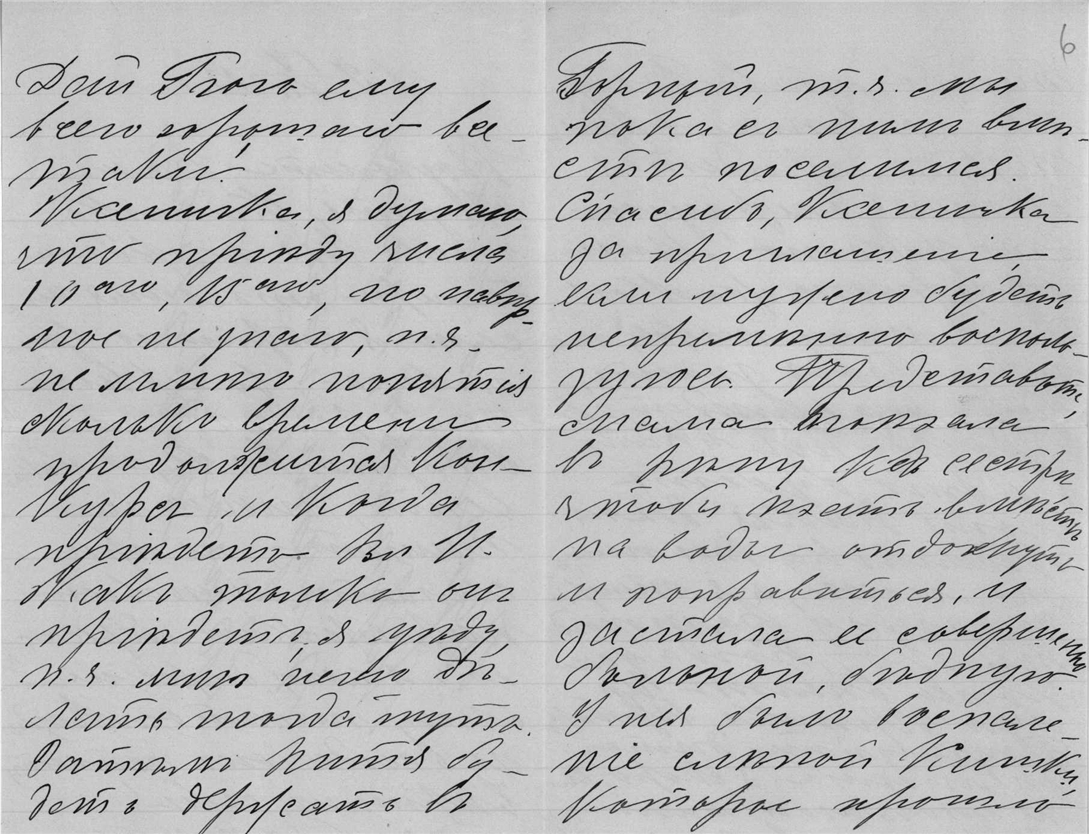 Дай Бого ему
всего хорошаго все-
таки.
Ксеничка, я думаю,
что пріѣду числа
10аго, 15аго, но навѣр-
ное не знаю, п.я.
не имѣю понятія
сколько времени
продолжится Кон-
курсъ и когда
пріѣдетъ Вл И.
Какъ только онъ
пріѣдетъ, я уѣду,
п.я. мнѣ нечего дѣ-
лать тогда тутъ.
Затѣмъ Китя бу-
детъ держать въ
6
Горный, т.я. мы
пока съ нимъ вмѣ-
стѣ поселимся.
Спасибо, Ксеничка
за приглашеніе,
если нужно будетъ
непремѣнно восполь-
зуюсь. Представьте,
мама поѣхала
въ Ригу къ сестрѣ
чтобы ѣхать вмѣстѣ
на воды отдохнуть
и поправиться, и
застала ее совершенно
больной, бѣдную.
У нея было воспале-
ніе слѣпой Кишки,
которое прошло